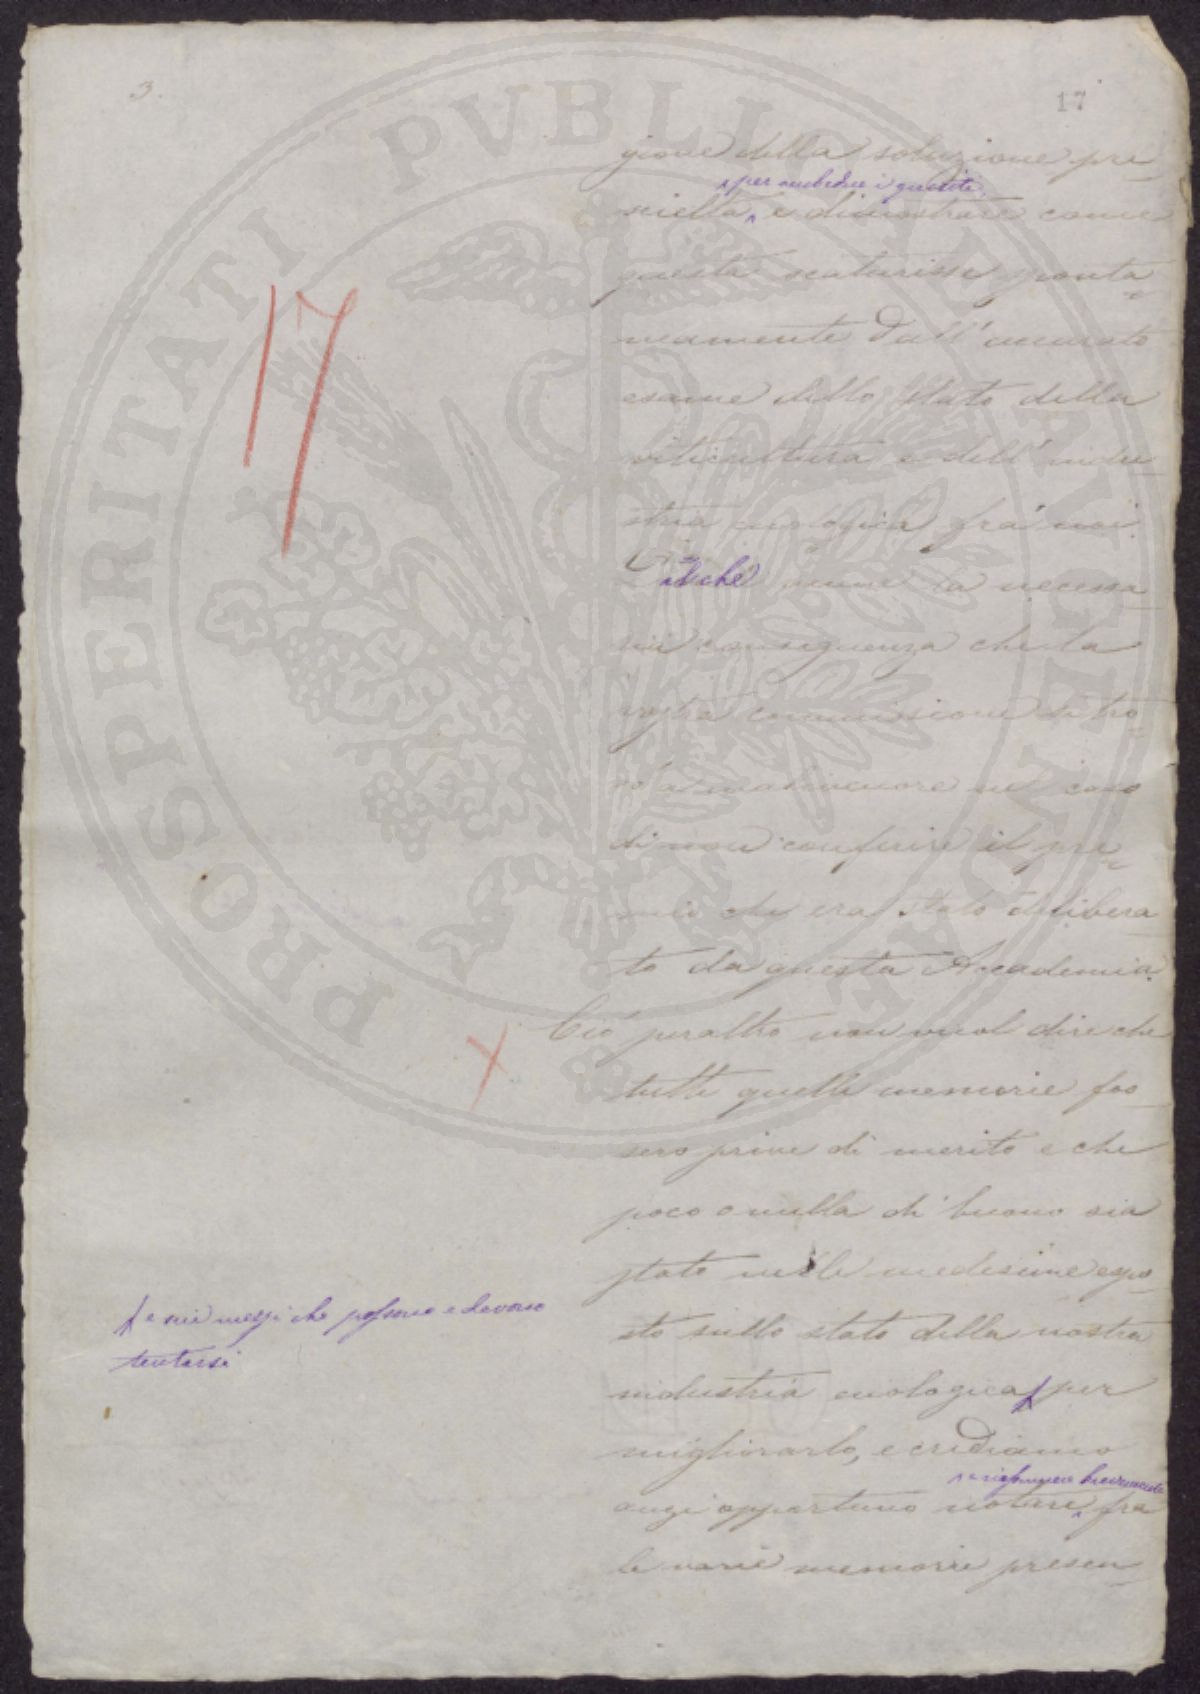 3.
17
PROSPERITATI PVBLICAE AVGENDAE
17
gione della soluzione pre-
per ambedue i quesiti
scielta, e dimostrare come
questa scaturisse sponta-
neamente dall'accurato
esame dello stato della
viticultura e dell'indu-
stria enologica fra noi.
Il che venne la necessa-
ria conseguenza che la
vostra commissione si tro-
di non conferire il pre-
mio che era stato delibera-
to da questa Accademia.
X
Ciò peraltro non vuol dire che
tutte quelle memorie fos-
sero prive di merito e che
poco o nulla di buono sia
stato nelle medesime espo-
sto sullo stato della nostra
industria enologica per
e sui mezzi che possono e devono
tentarsi
migliorarlo, e crediamo
e riassumere brevemente
anzi opportuno notare fra
le varie memorie presen-